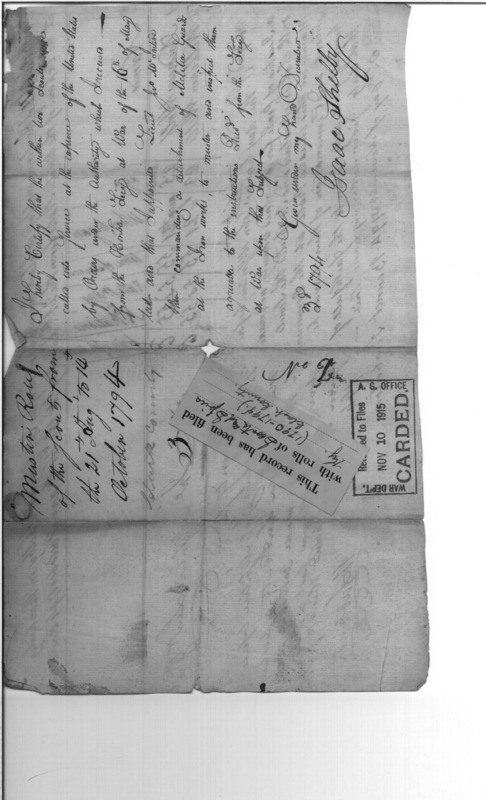 I hereby Certify that the within ten Scouts were
called into Service at the expence of the United States
by Orders under the Authority which I received
from the Honble. Secy. at War of the 16th of May
last and that I appointed Lieut. Jno. McIntire
than commanding a detachment of Militia Guard
at the Iron works, to muster and inspect them
agreeable to the instructions Recd from the Secy
at War upon that Subject
Given under my hand December
3d 1794
Isaac Shelby
Muster Roll
of the Scouts from
the 21st Augt to 14
October 1794
Clark County
3
This record has been filed
with rolls of
Ky.
(1790-1794)
Clark County
No
A. G. OFFICE
Returned to Files
NOV 10 1915
CARDED.
WAR DEPT.